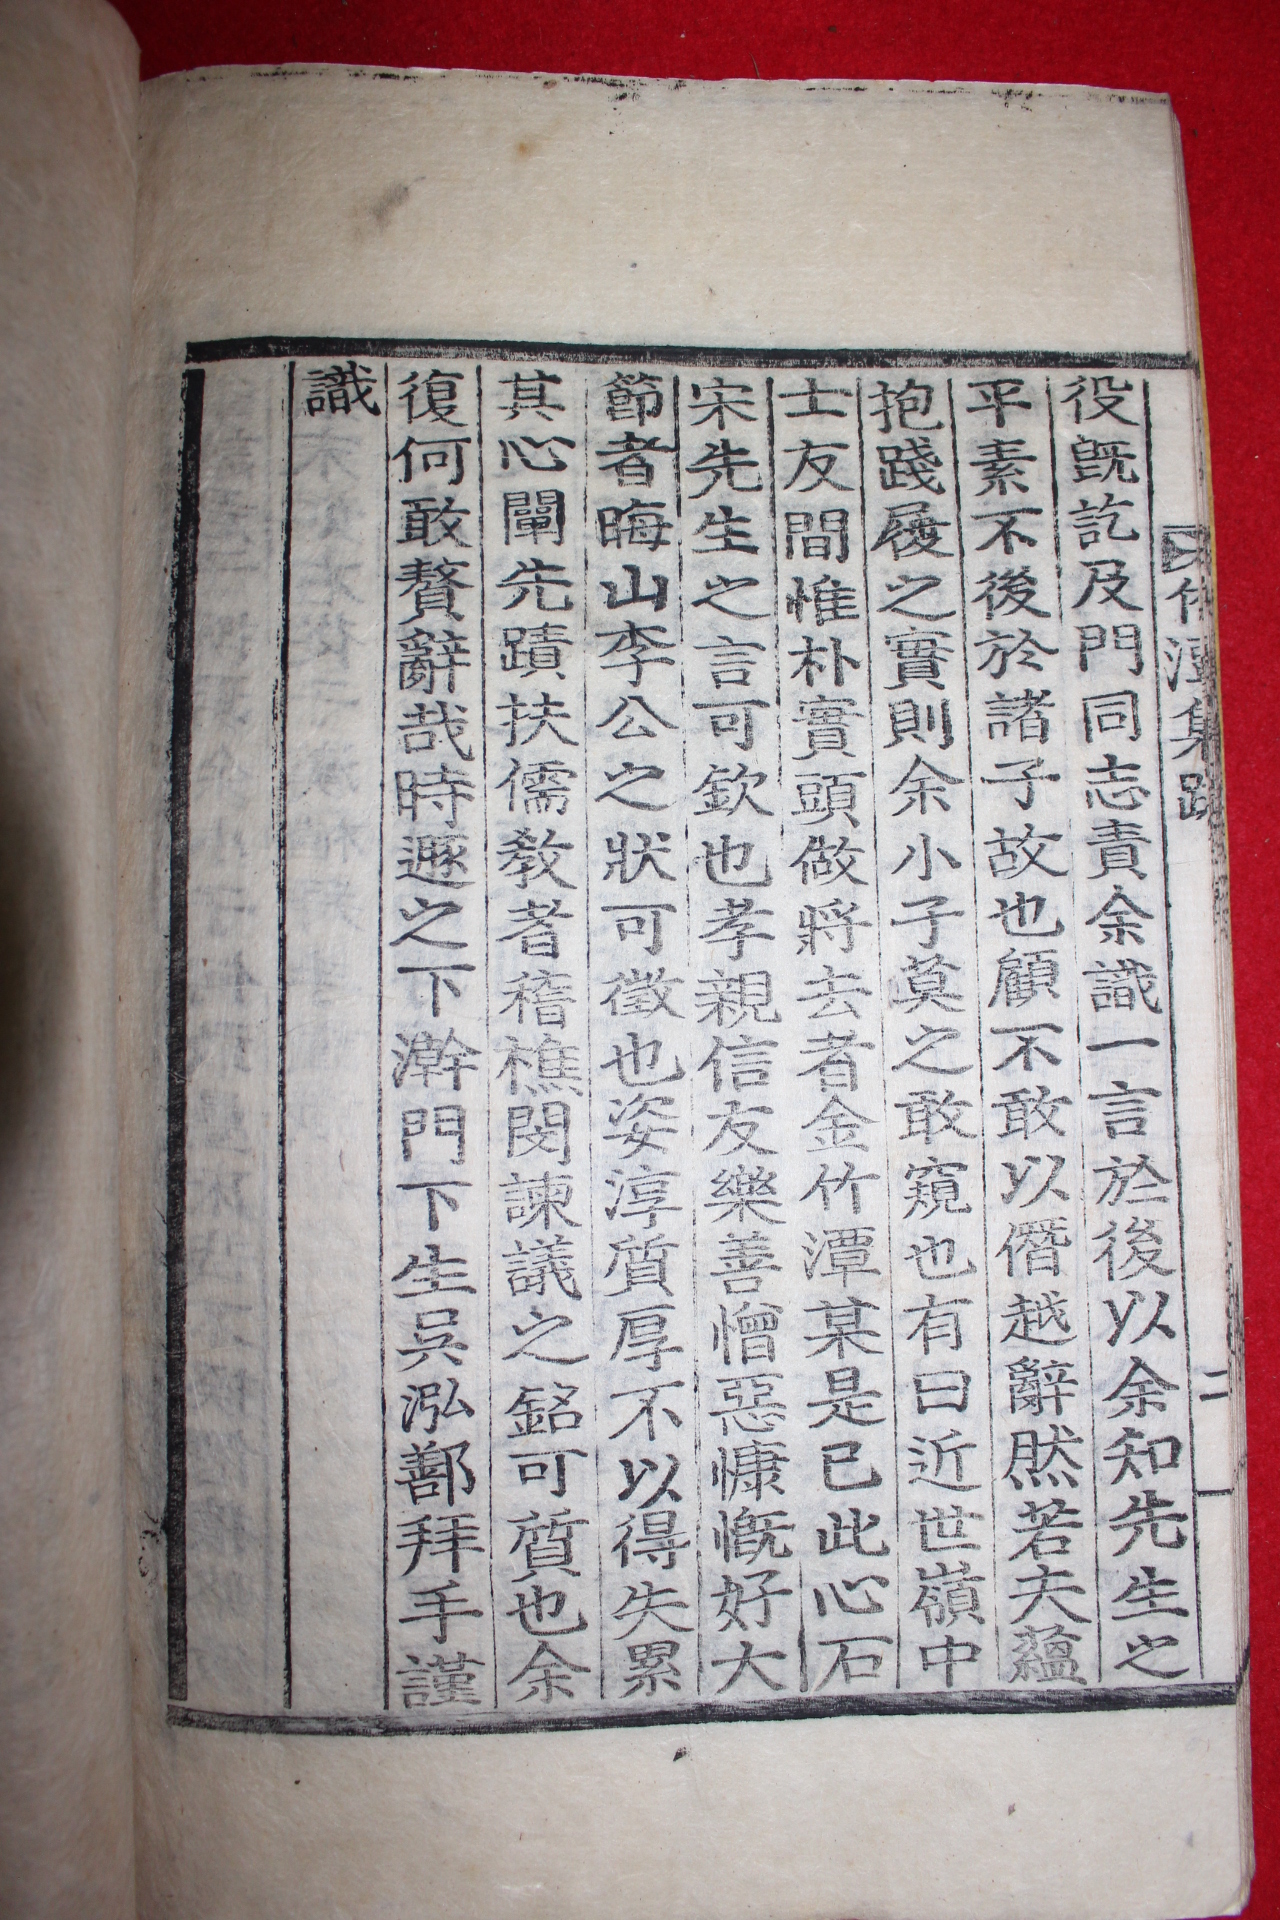 竹潭集跋 二
役旣訖及門同志責余識一言於後以余知先生之
平素不後於諸子故也顧不敢以僭越辭然若夫蘊
抱踐履之實則余小子莫之敢窺也有曰近世嶺中
士友間惟朴實頭做將去者金竹潭某是已此心石
宋先生之言可欽也孝親信友樂善憎惡慷慨好大
節者晦山李公之狀可徵也姿淳質厚不以得失累
其心闡先蹟扶儒敎者稽樵閔諫議之銘可質也余
復何敢贅辭哉時遯之下澣門下生吳泓鄯拜手謹
識